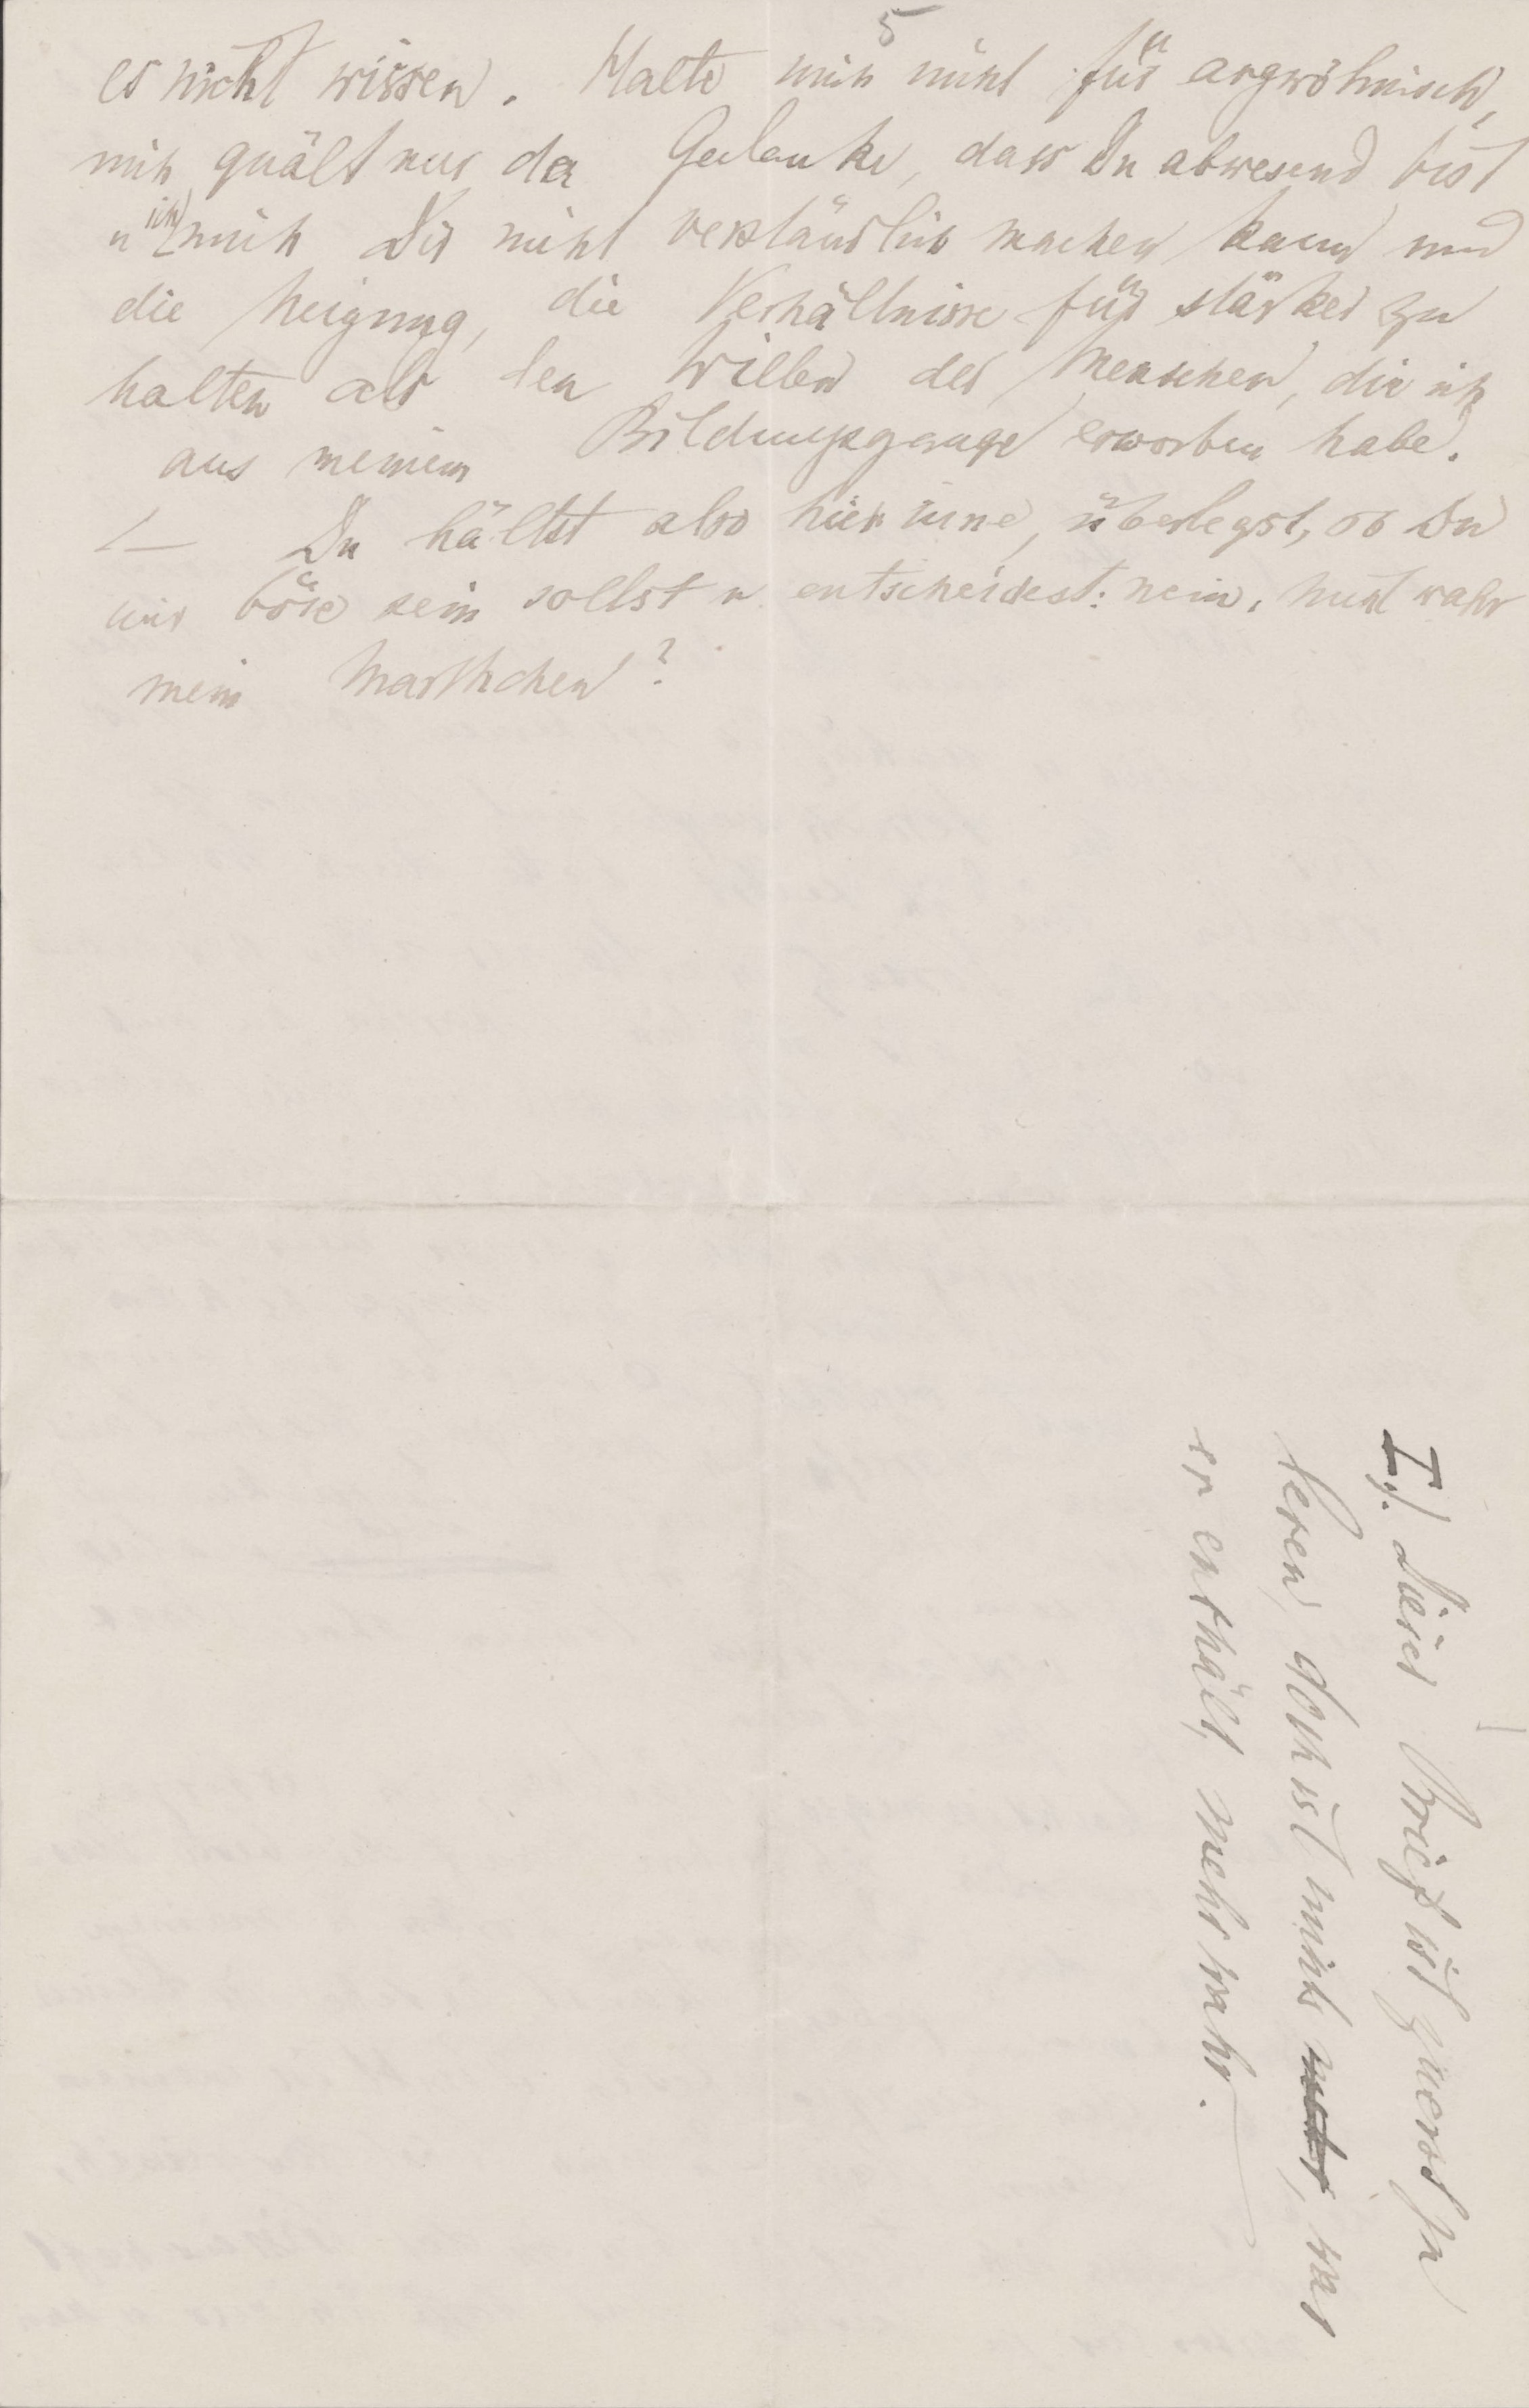 5
es nicht wissen. Halte mich nicht für argwöhnisch,
mich quält nur der Gedanke, dass Du abwesend bist
u ich mich Dir nicht verständlich machen kann und
die Neigung, die Verhältnisse für stärker zu
halten als den Willen der Menschen, die ich
aus meinem Bildungsgange erworben habe.
/— Du hältst also hier inne, überlegst, ob Du
mir böse sein sollst u entscheidest: nein. Nicht wahr
mein Marthchen?
I). Dieser Brief ist zuerst zu
lesen, doch ist nichts mehr, was
er enthält, mehr wahr.